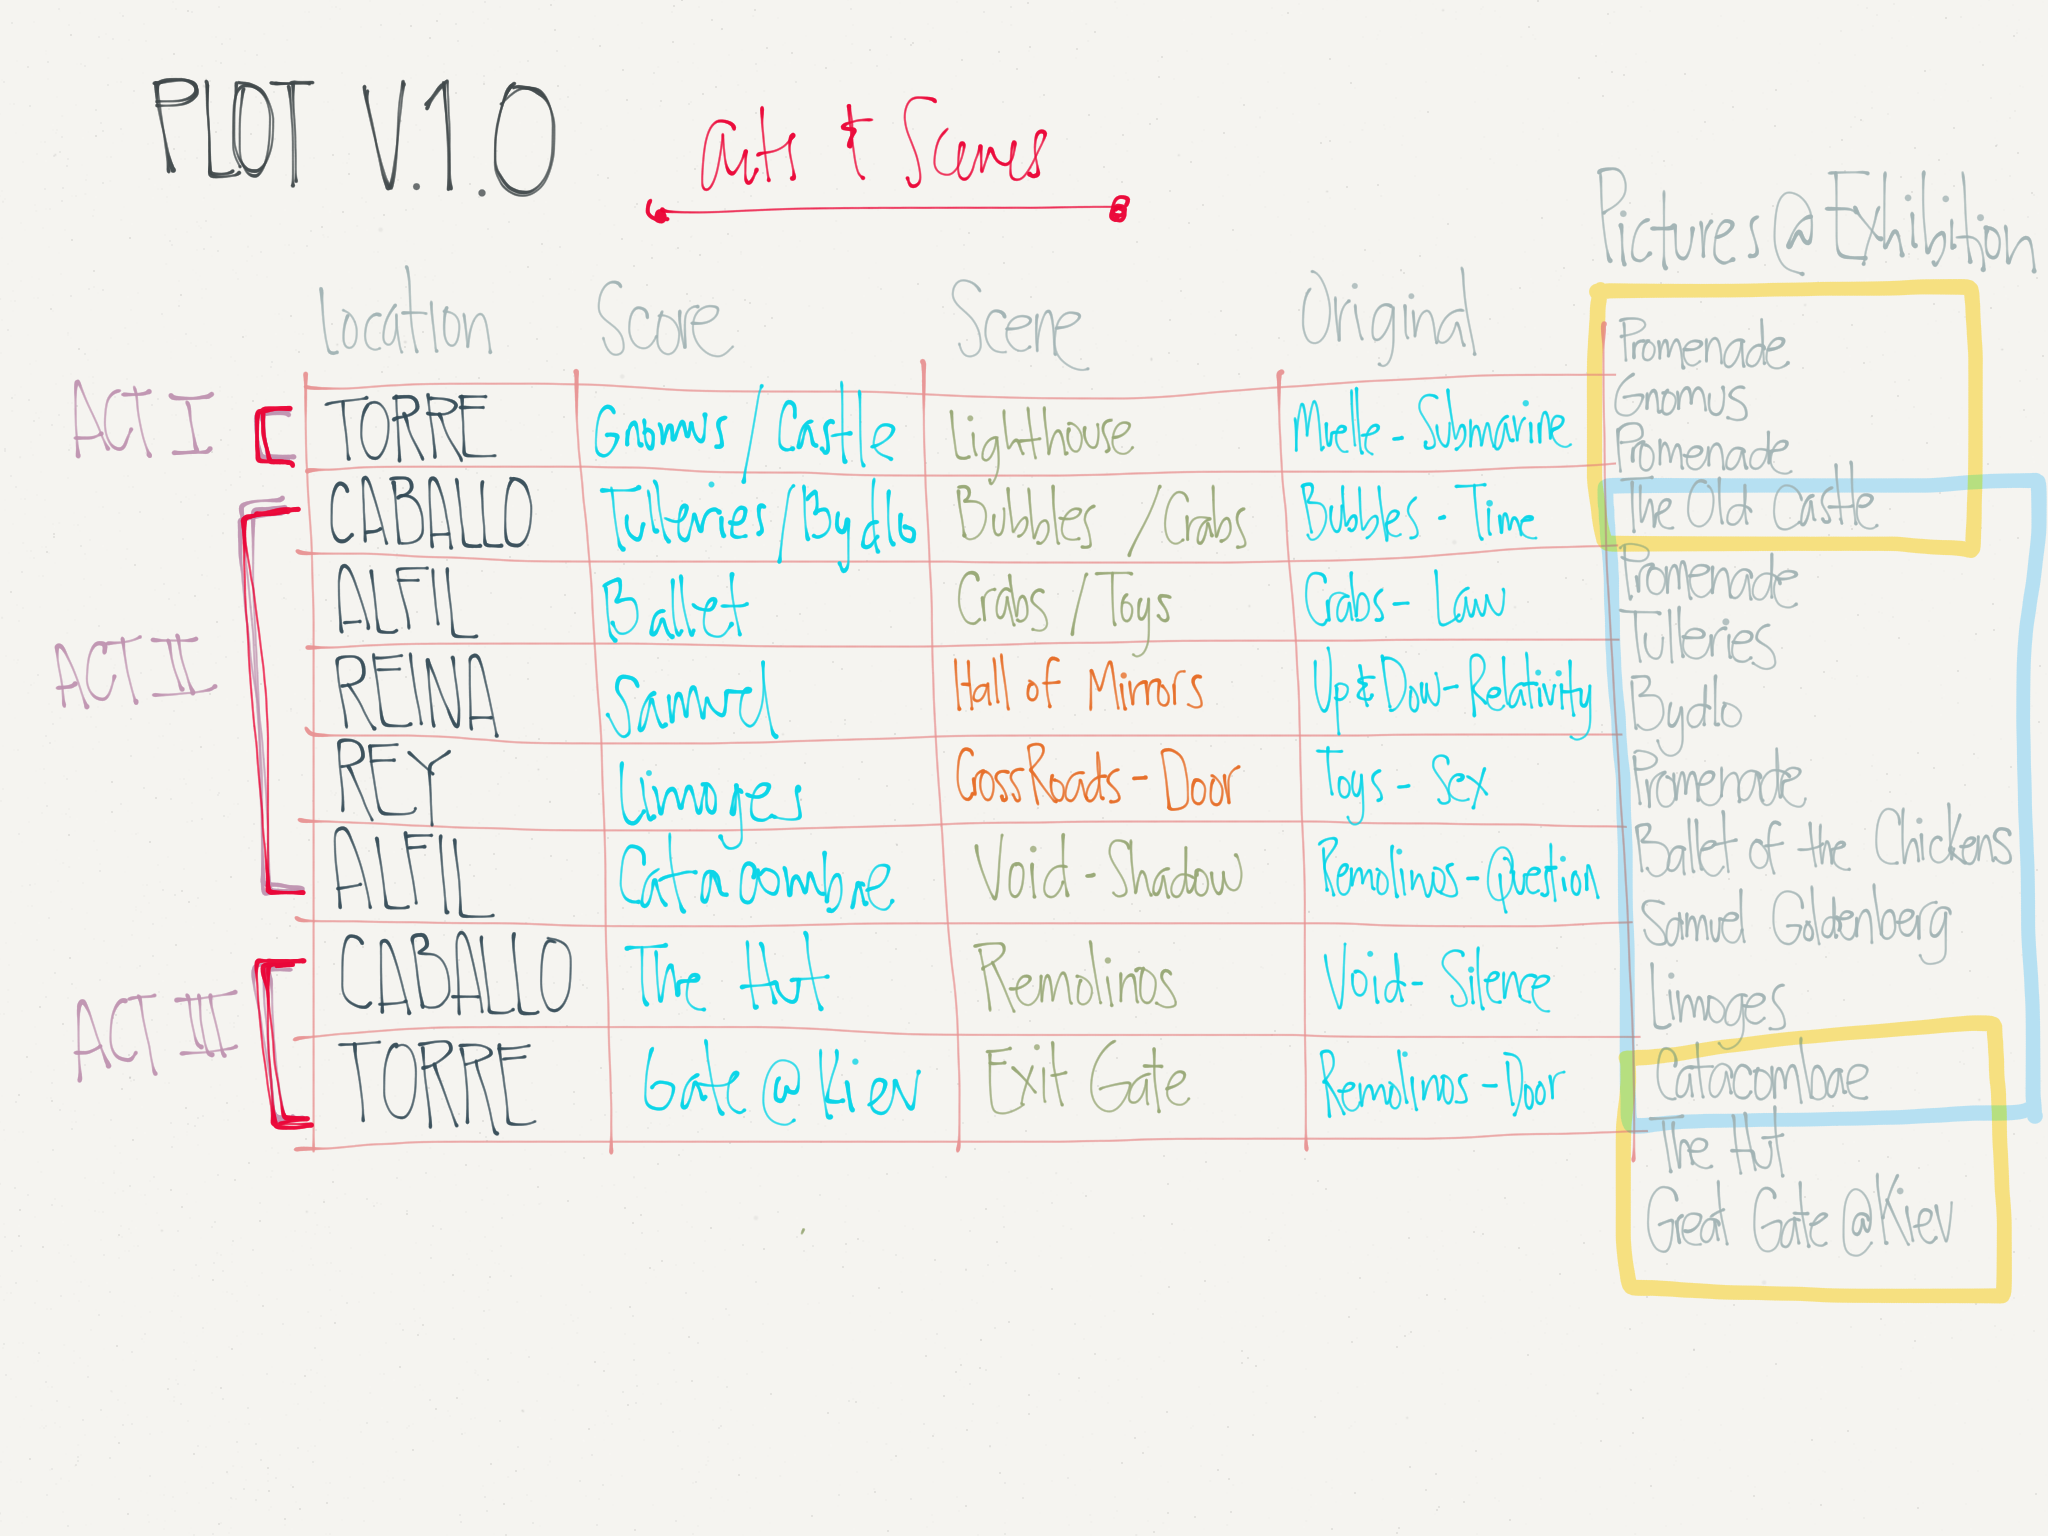 PLOT V.1.0
Acts & Scenes
Pictures @ Exhibition
Location Score Scene Original
ACT I
TORRE Gnomus / Castle Lighthouse Muelle - Submarine
CABALLO Tulleries / Bydlo Bubbles / Crabs Bubbles - Time
ACT II
ALFIL Ballet Crabs / Toys Crabs - Law
REINA Samuel Hall of Mirrors Up & Dow - Relativity
REY Limoges CrossRoads - Door Toys - Sex
ALFIL Catacombae Void - Shadow Remolinos - Question
ACT III
CABALLO The Hut Remolinos Void - Silence
TORRE Gate @ Kiev Exit Gate Remolinos - Door
Promenade
Gnomus
Promenade
The Old Castle
Promenade
Tulleries
Bydlo
Promenade
Ballet of the Chickens
Samuel Goldenberg
Limoges
Catacombae
The Hut
Great Gate @ Kiev